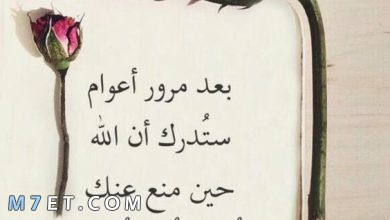 بعد مرور أعوام
ستُدرك أن الله
حين منع عنك
M7ET.COM